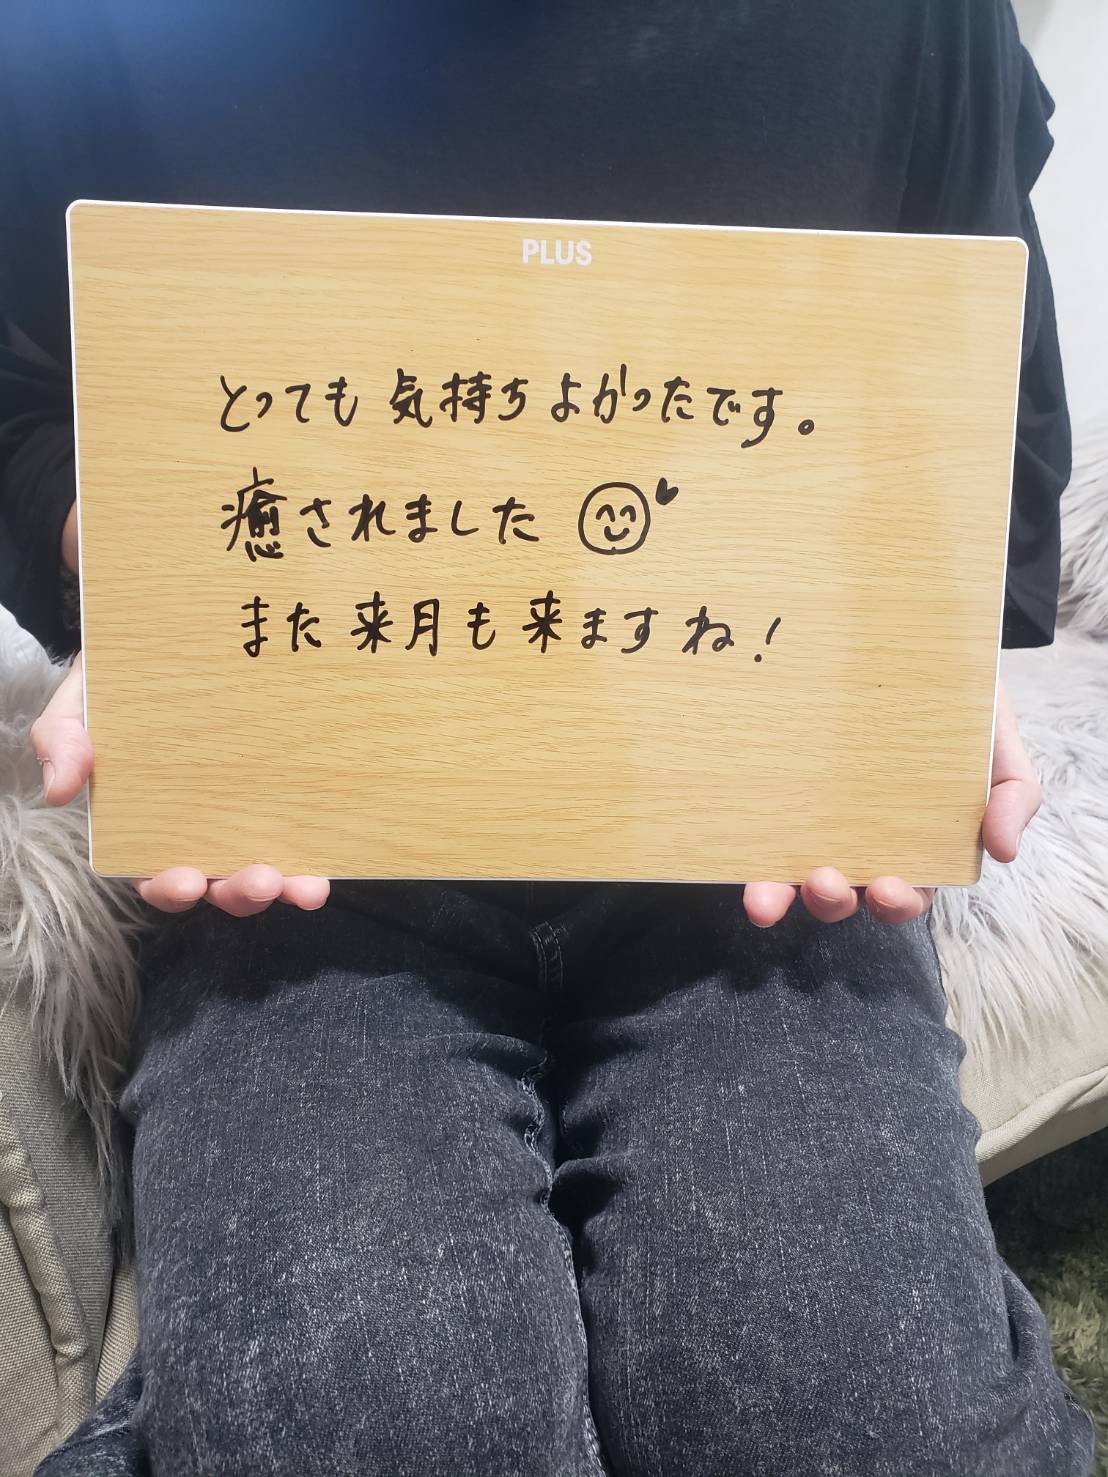 PLUS
とっても気持ちよかったです。
癒されました
また来月も来ますね!